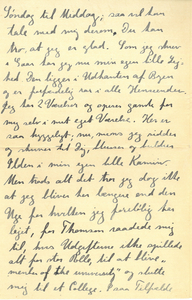 Søndag til Middag, saa vil han
tale med mig derom. Du kan
tro. at jeg er glad. Som jeg skrev
i Gaar har jeg nu min egen lille Lej-
lighed. Den ligger i Udkanten af Byen
og er forfærdelig sød i alle Henseender.
Jeg har 2 Værelser og opererer ganske for
mig selv i mit eget Værelse. Her er
saa hyggeligt, nu, mens jeg sidder
og skriver til Dig,
Ilden i min egen lille Kamin.
Men trods alt det tror jeg dog ikke
at jeg bliver her længere end den
Uge for hvilken jeg foreløbig har
lejet, for Thomson raadede mig
til, hvis Udgifterne ikke spillede
alt for stor Rolle, til at blive
"member of the university" og slutte
mig til et College. I saa Tilfælde